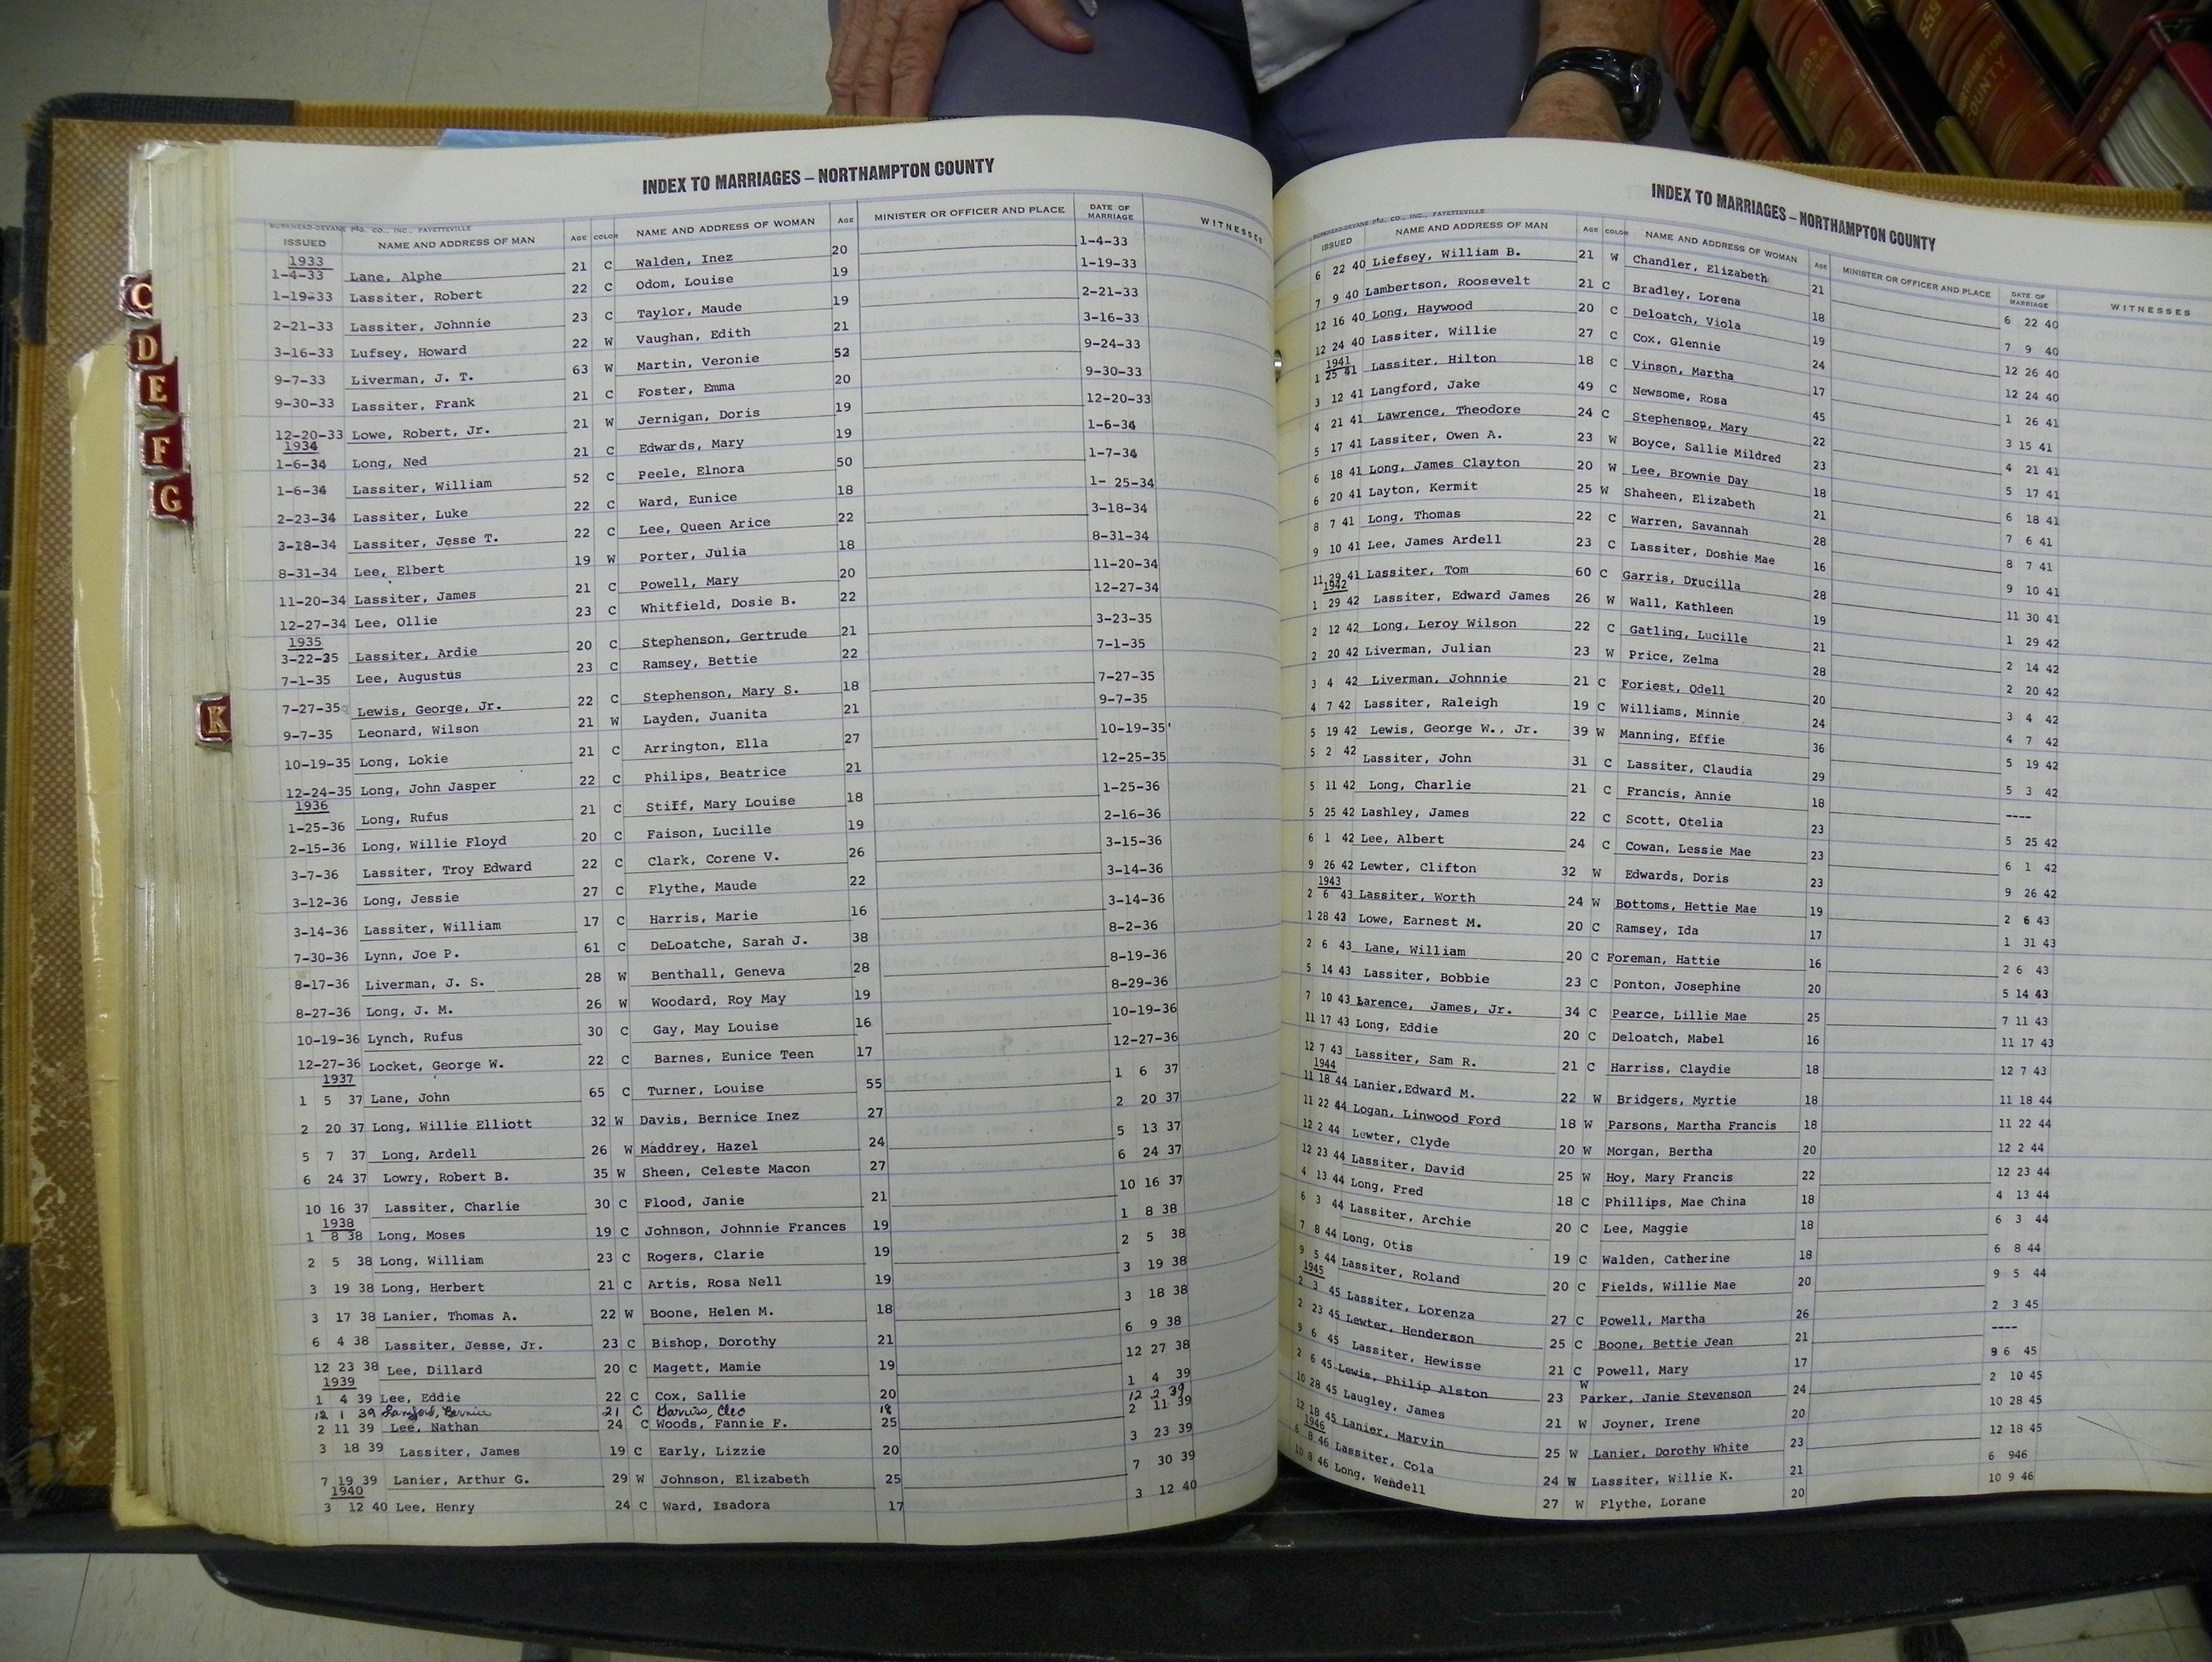 INDEX TO MARRIAGES – NORTHAMPTON COUNTY
BURKHEAD-DEVANE P'TG. CO., INC., FAYETTEVILLE
ISSUED NAME AND ADDRESS OF MAN AGE COLOR NAME AND ADDRESS OF WOMAN AGE MINISTER OR OFFICER AND PLACE DATE OF MARRIAGE WITNESSES
1933
1-4-33 Lane, Alphe 21 C Walden, Inez 20 1-4-33
1-19-33 Lassiter, Robert 22 C Odom, Louise 19 1-19-33
2-21-33 Lassiter, Johnnie 23 C Taylor, Maude 19 2-21-33
3-16-33 Lufsey, Howard 22 W Vaughan, Edith 21 3-16-33
9-7-33 Liverman, J. T. 63 W Martin, Veronie 52 9-24-33
9-30-33 Lassiter, Frank 21 C Foster, Emma 20 9-30-33
12-20-33 Lowe, Robert, Jr. 21 W Jernigan, Doris 19 12-20-33
1934
1-6-34 Long, Ned 21 C Edwards, Mary 19 1-6-34
1-6-34 Lassiter, William 52 C Peele, Elnora 50 1-7-34
2-23-34 Lassiter, Luke 22 C Ward, Eunice 18 1- 25-34
3-18-34 Lassiter, Jesse T. 22 C Lee, Queen Arice 22 3-18-34
8-31-34 Lee, Elbert 19 W Porter, Julia 18 8-31-34
11-20-34 Lassiter, James 21 C Powell, Mary 20 11-20-34
12-27-34 Lee, Ollie 23 C Whitfield, Dosie B. 22 12-27-34
1935
3-22-35 Lassiter, Ardie 20 C Stephenson, Gertrude 21 3-23-35
7-1-35 Lee, Augustus 23 C Ramsey, Bettie 22 7-1-35
7-27-35 Lewis, George, Jr. 22 C Stephenson, Mary S. 18 7-27-35
9-7-35 Leonard, Wilson 21 W Layden, Juanita 21 9-7-35
10-19-35 Long, Lokie 21 C Arrington, Ella 27 10-19-35
12-24-35 Long, John Jasper 22 C Philips, Beatrice 21 12-25-35
1936
1-25-36 Long, Rufus 21 C Stiff, Mary Louise 18 1-25-36
2-15-36 Long, Willie Floyd 20 C Faison, Lucille 19 2-16-36
3-7-36 Lassiter, Troy Edward 22 C Clark, Corene V. 26 3-15-36
3-12-36 Long, Jessie 27 C Flythe, Maude 22 3-14-36
3-14-36 Lassiter, William 17 C Harris, Marie 16 3-14-36
7-30-36 Lynn, Joe P. 61 C DeLoatche, Sarah J. 38 8-2-36
8-17-36 Liverman, J. S. 28 W Benthall, Geneva 28 8-19-36
8-27-36 Long, J. M. 26 W Woodard, Roy May 19 8-29-36
10-19-36 Lynch, Rufus 30 C Gay, May Louise 16 10-19-36
12-27-36 Locket, George W. 22 C Barnes, Eunice Teen 17 12-27-36
1937
1 5 37 Lane, John 65 C Turner, Louise 55 1 6 37
2 20 37 Long, Willie Elliott 32 W Davis, Bernice Inez 27 2 20 37
5 7 37 Long, Ardell 26 W Maddrey, Hazel 24 5 13 37
6 24 37 Lowry, Robert B. 35 W Sheen, Celeste Macon 27 6 24 37
10 16 37 Lassiter, Charlie 30 C Flood, Janie 21 10 16 37
1938
1 8 38 Long, Moses 19 C Johnson, Johnnie Frances 19 1 8 38
2 5 38 Long, William 23 C Rogers, Clarie 19 2 5 38
3 19 38 Long, Herbert 21 C Artis, Rosa Nell 19 3 19 38
3 17 38 Lanier, Thomas A. 22 W Boone, Helen M. 18 3 18 38
6 4 38 Lassiter, Jesse, Jr. 23 C Bishop, Dorothy 21 6 9 38
12 23 38 Lee, Dillard 20 C Magett, Mamie 19 12 27 38
1939
1 4 39 Lee, Eddie 22 C Cox, Sallie 20 1 4 39
12 1 39 Langford, Bernice 21 C Garriss, Cleo 18 12 2 39
2 11 39 Lee, Nathan 24 C Woods, Fannie F. 25 2 11 39
3 18 39 Lassiter, James 19 C Early, Lizzie 20 3 23 39
7 19 39 Lanier, Arthur G. 29 W Johnson, Elizabeth 25 7 30 39
1940
3 12 40 Lee, Henry 24 C Ward, Isadora 17 3 12 40
INDEX TO MARRIAGES – NORTHAMPTON COUNTY
BURKHEAD-DEVANE P'TG. CO., INC., FAYETTEVILLE
ISSUED NAME AND ADDRESS OF MAN AGE COLOR NAME AND ADDRESS OF WOMAN AGE MINISTER OR OFFICER AND PLACE DATE OF MARRIAGE WITNESSES
6 22 40 Liefsey, William B. 21 W Chandler, Elizabeth 21 6 22 40
7 9 40 Lambertson, Roosevelt 21 C Bradley, Lorena 18 7 9 40
12 16 40 Long, Haywood 20 C Deloatch, Viola 19 12 26 40
12 24 40 Lassiter, Willie 27 C Cox, Glennie 24 12 24 40
1941
1 25 41 Lassiter, Hilton 18 C Vinson, Martha 17 1 26 41
3 12 41 Langford, Jake 49 C Newsome, Rosa 45 3 15 41
4 21 41 Lawrence, Theodore 24 C Stephenson, Mary 22 4 21 41
5 17 41 Lassiter, Owen A. 23 W Boyce, Sallie Mildred 23 5 17 41
6 18 41 Long, James Clayton 20 W Lee, Brownie Day 18 6 18 41
6 20 41 Layton, Kermit 25 W Shaheen, Elizabeth 21 7 6 41
8 7 41 Long, Thomas 22 C Warren, Savannah 28 8 7 41
9 10 41 Lee, James Ardell 23 C Lassiter, Doshie Mae 16 9 10 41
11 29 41 Lassiter, Tom 60 C Garris, Drucilla 28 11 30 41
1942
1 29 42 Lassiter, Edward James 26 W Wall, Kathleen 19 1 29 42
2 12 42 Long, Leroy Wilson 22 C Gatling, Lucille 21 2 14 42
2 20 42 Liverman, Julian 23 W Price, Zelma 28 2 20 42
3 4 42 Liverman, Johnnie 21 C Foriest, Odell 20 3 4 42
4 7 42 Lassiter, Raleigh 19 C Williams, Minnie 24 4 7 42
5 19 42 Lewis, George W., Jr. 39 W Manning, Effie 36 5 19 42
5 2 42 Lassiter, John 31 C Lassiter, Claudia 29 5 3 42
5 11 42 Long, Charlie 21 C Francis, Annie 18 ----
5 25 42 Lashley, James 22 C Scott, Otelia 23 5 25 42
6 1 42 Lee, Albert 24 C Cowan, Lessie Mae 23 6 1 42
9 26 42 Lewter, Clifton 32 W Edwards, Doris 23 9 26 42
1943
2 6 43 Lassiter, Worth 24 W Bottoms, Hettie Mae 19 2 6 43
1 28 43 Lowe, Earnest M. 20 C Ramsey, Ida 17 1 31 43
2 6 43 Lane, William 20 C Foreman, Hattie 16 2 6 43
5 14 43 Lassiter, Bobbie 23 C Ponton, Josephine 20 5 14 43
7 10 43 Larence, James, Jr. 34 C Pearce, Lillie Mae 25 7 11 43
11 17 43 Long, Eddie 20 C Deloatch, Mabel 16 11 17 43
12 7 43 Lassiter, Sam R. 21 C Harriss, Claydie 18 12 7 43
1944
11 18 44 Lanier,Edward M. 22 W Bridgers, Myrtie 18 11 18 44
11 22 44 Logan, Linwood Ford 18 W Parsons, Martha Francis 18 11 22 44
12 2 44 Lewter, Clyde 20 W Morgan, Bertha 20 12 2 44
12 23 44 Lassiter, David 25 W Hoy, Mary Francis 22 12 23 44
4 13 44 Long, Fred 18 C Phillips, Mae China 18 4 13 44
6 3 44 Lassiter, Archie 20 C Lee, Maggie 18 6 3 44
7 8 44 Long, Otis 19 C Walden, Catherine 18 6 8 44
9 5 44 Lassiter, Roland 20 C Fields, Willie Mae 20 9 5 44
1945
2 3 45 Lassiter, Lorenza 27 C Powell, Martha 26 2 3 45
2 23 45 Lewter, Henderson 25 C Boone, Bettie Jean 21 ----
9 6 45 Lassiter, Hewisse 21 C Powell, Mary 17 9 6 45
2 6 45 Lewis, Philip Alston 23 W Parker, Janie Stevenson 24 2 10 45
10 28 45 Laugley, James 21 W Joyner, Irene 20 10 28 45
12 18 45 Lanier, Marvin 25 W Lanier, Dorothy White 23 12 18 45
1946
6 8 46 Lassiter, Cola 24 W Lassiter, Willie K. 21 6 946
10 8 46 Long, Wendell 27 W Flythe, Lorane 20 10 9 46
C
D
E
F
G
K
559
COUNTY